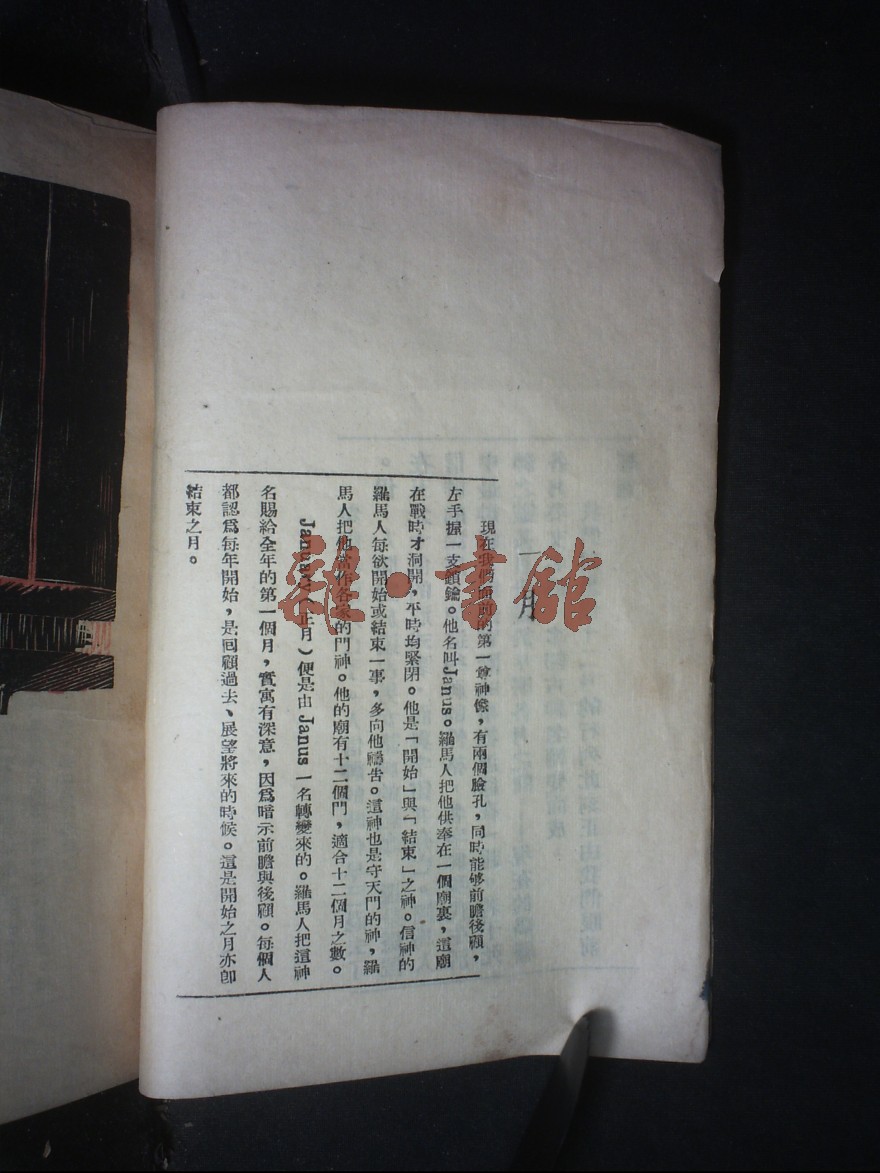 一月
現在我們面前的第一尊神像，有兩個臉孔，同時能够前瞻後顧，
左手握一支鎖鑰。他名叫Janus。羅馬人把他供奉在一個廟裏，這廟
在戰時才洞開，平時均緊閉。他是「開始」與「結束」之神。信神的
羅馬人每欲開始或結束一事，多向他禱告。這神也是守天門的神，羅
馬人把他當作各家的門神。他的廟有十二個門，適合十二個月之數。
January（正月）便是由 Janus 一名轉變來的。羅馬人把這神
名賜給全年的第一個月，實寓有深意，因爲暗示前瞻與後顧。每個人
都認爲每年開始，是囘顧過去、展望將來的時候。這是開始之月亦卽
結束之月。
雜·書館